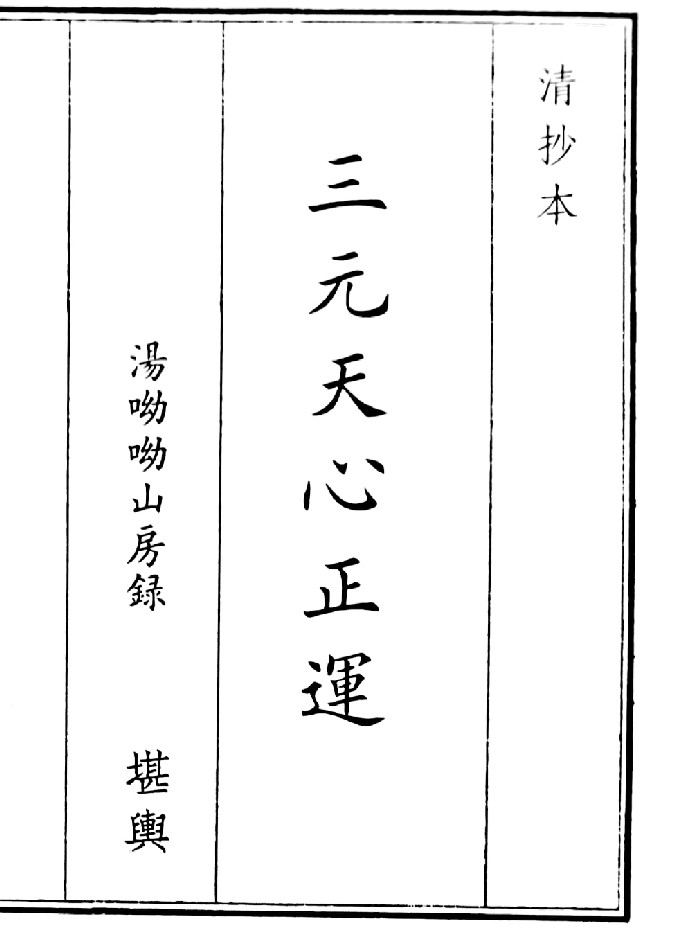 清抄本
三元天心正運
湯呦呦山房録
堪輿